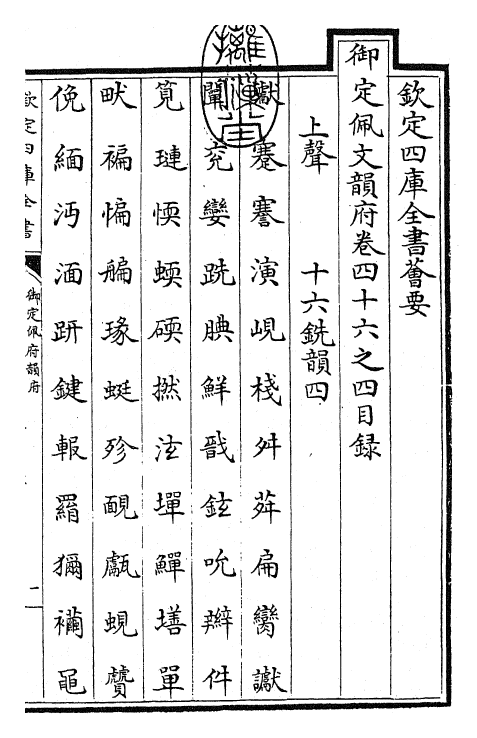 欽定四庫全書薈要
御定佩文韻府卷四十六之四目録
上聲 十六銑韻四
巘蹇謇演峴棧舛荈扁臠讞
闡兖孌跣腆鮮戩鉉吮辮件
筧璉愞蝡碝撚泫墠鱓墡單
畎褊惼艑瑑蜓殄靦甗蜆贙
俛緬沔湎趼鍵輾羂獮襺黽
欽定四庫全書
御定佩府韻府
二